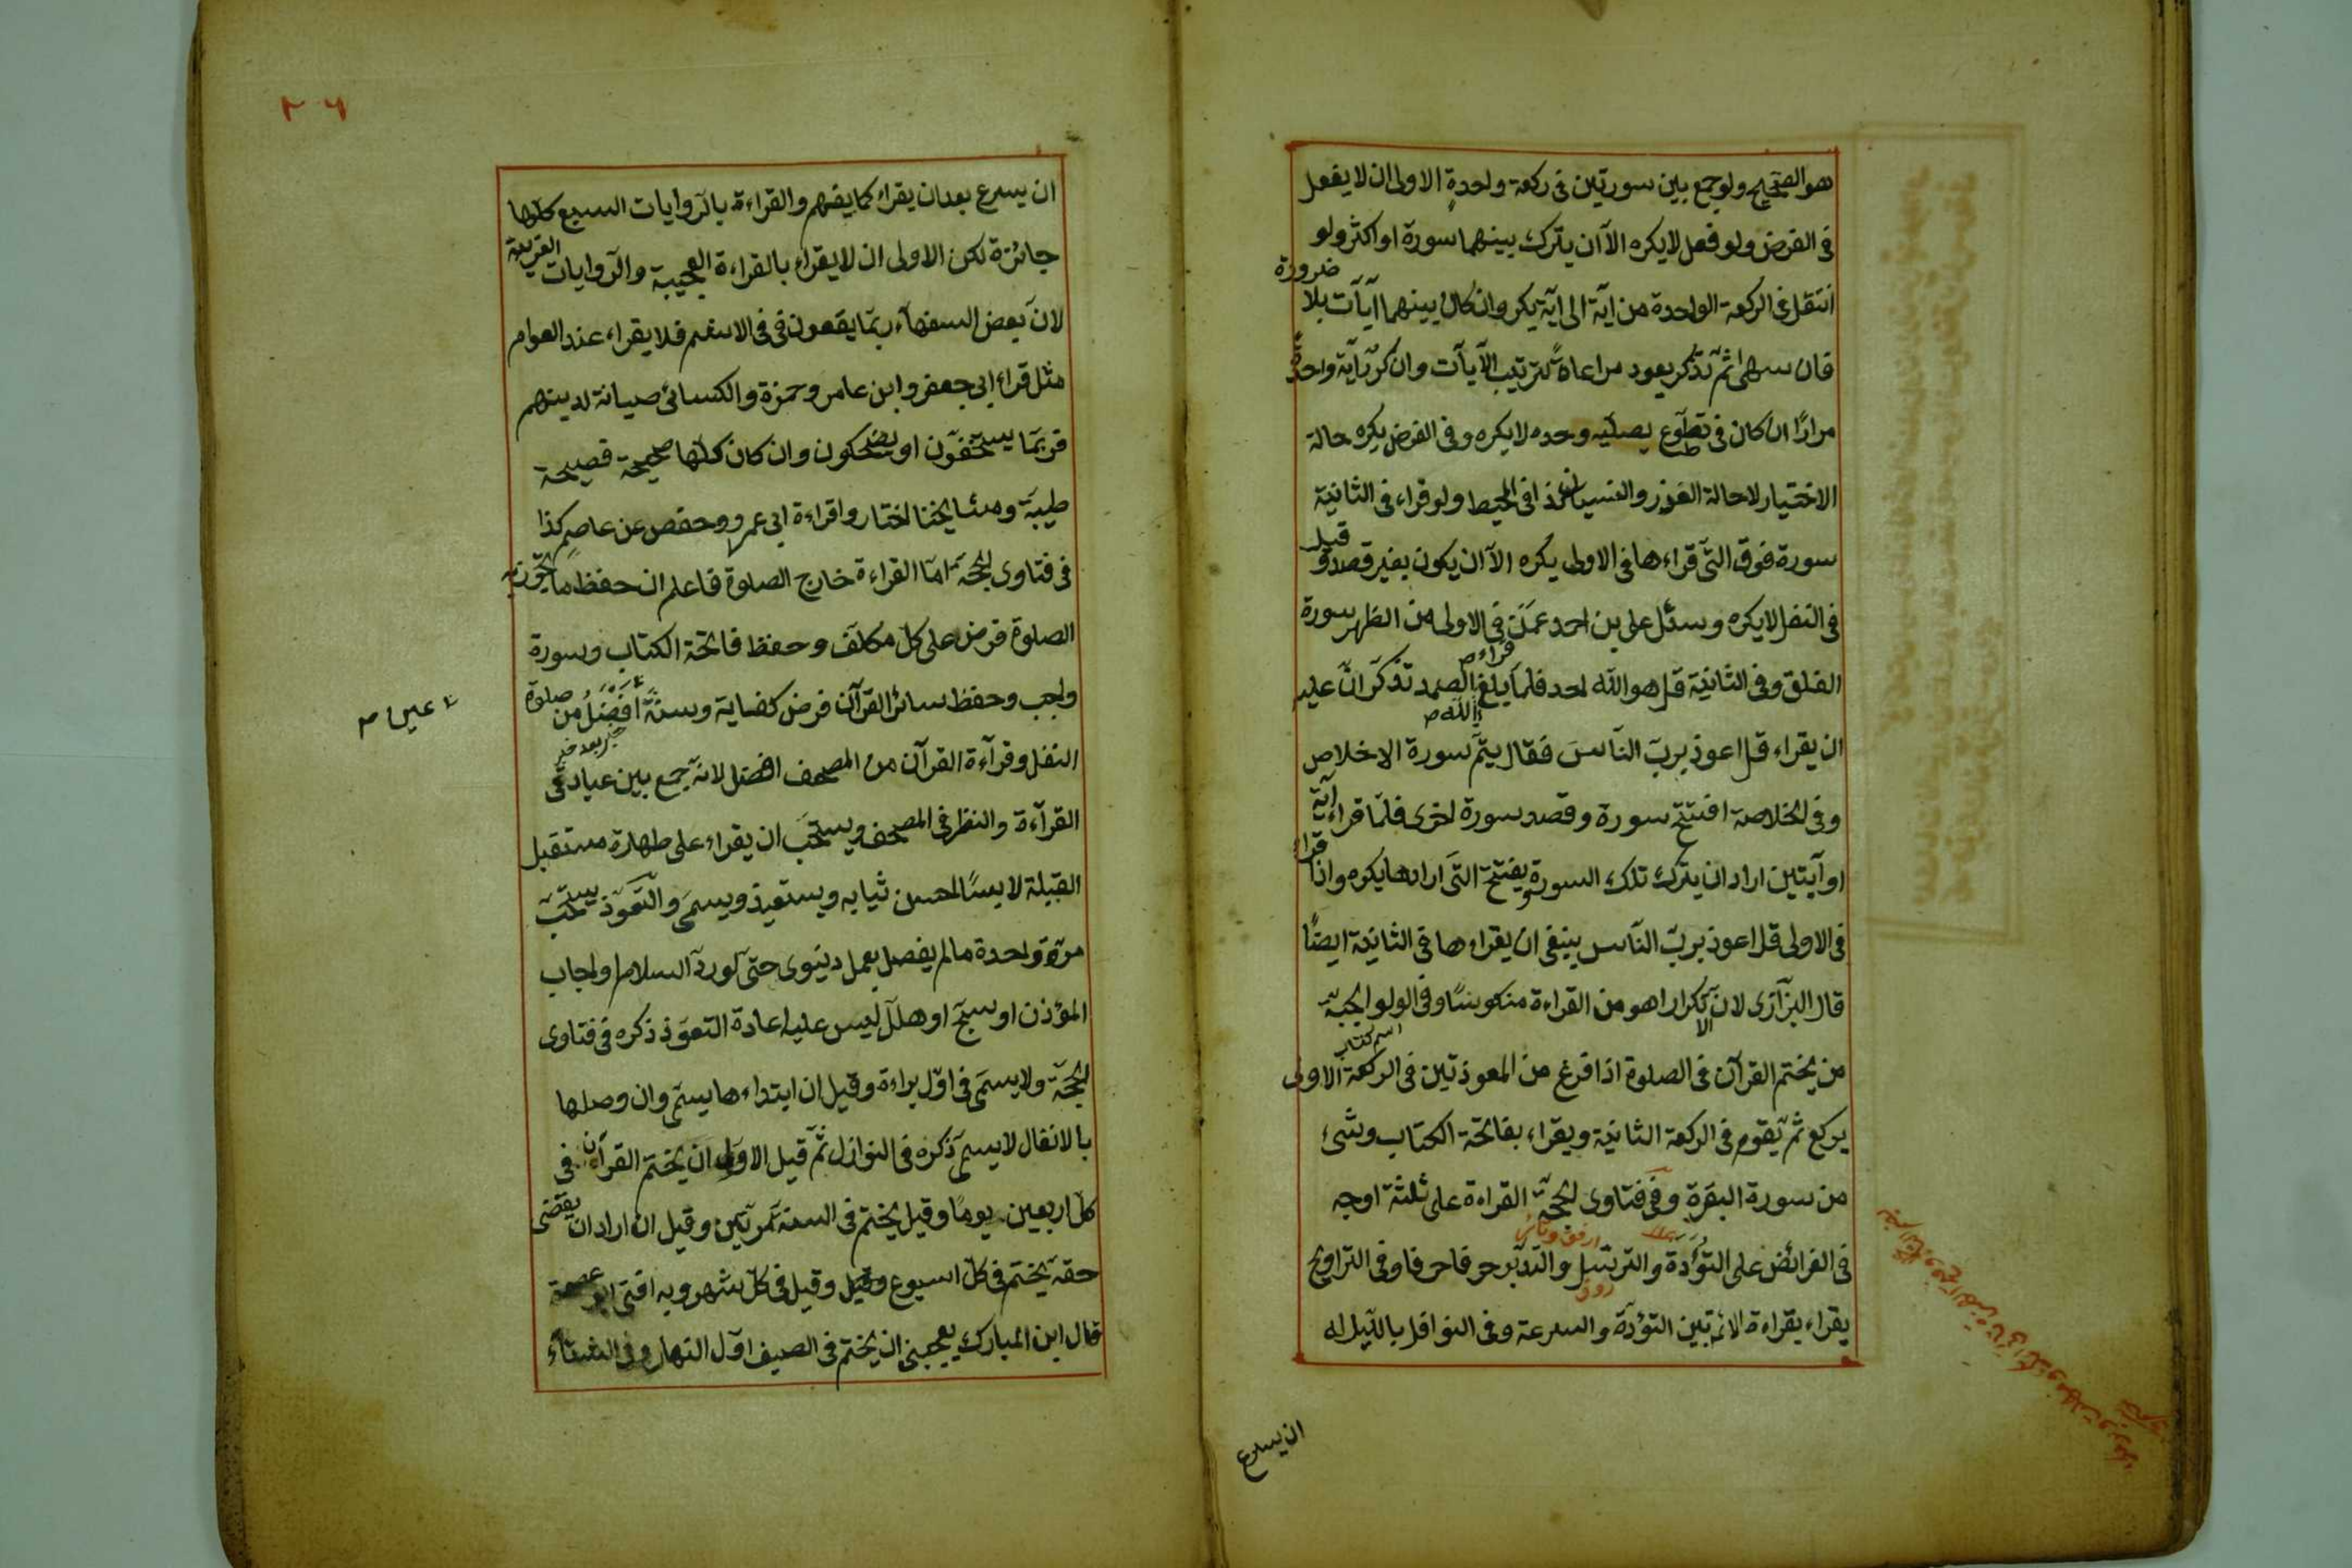 هو الصحيح ولو جمع بين سورتين في ركعة واحدة الاولى ان لا يفعل
في الفرض ولو فعل لا يكره الا ان يترك بينهما سورة او اكثر ولو
انتقل في الركعة الواحدة من اية الى اية يكره وان كان بينهما آيات بلا ضرورة
فان سهى ثم تذكر يعود مراعاة لترتيب الآيات وان كرر آية واحدة
مرارًا ان كان في تطوع يصليه وحده لا يكره وفي الفرض يكره حالة
الاختيار لا حالة العذر والنسيان كذا في المحيط ولو قراء في الثانية
سورة فوق التي قراءها في الاولى يكره الا ان يكون بغير قصد وقيل
في النفل لا يكره وسئل علي بن احمد عمن قراء في الاولى من الظهر سورة
الفلق وفي الثانية قل هو الله احد فلما بلغ الله الصمد تذكر ان عليه
ان يقراء قل اعوذ برب الناس فقال يتم سورة الاخلاص
وفي الخلاصة افتتح سورة وقصد سورة اخرى فلما قراء آية
او آيتين اراد ان يترك تلك السورة ويفتتح التي ارادها يكره واذا قراء
في الاولى قل اعوذ برب الناس ينبغي ان يقراءها في الثانية ايضًا
قال البزازى لان تكرارا هو من القراءة منكوسًا وفي الولوالجية
اسم كتاب
من يختم القرآن في الصلوة اذا فرغ من المعوذتين في الركعة الاولى
يركع ثم يقوم في الركعة الثانية ويقراء بفاتحة الكتاب وشئ
من سورة البقرة وفي فتاوى الحجة القراءة على ثلثة اوجه
في الفرائض على التؤدة والترتيل والتدبر حرفا حرفا وفي التراويح
يقراء بقراءة الائمة بين التؤدة والسرعة وفي النوافل بالليل له
ان يسرع
٢٦
ان يسرع بعد ان يقراء كما يفهم والقراءة بالروايات السبع كلها
جائزة لكن الاولى ان لا يقراء بالقراءة العجيبة والروايات الغريبة
لان بعض السفهاء ربما يقعون في الاثم فلا يقراء عند العوام
مثل قراءة ابي جعفر وابن عامر وحمزة والكسائى صيانة لدينهم
فربما يستخفون او يضحكون وان كان كلها صحيحة فصيحة
طيبة ومشايخنا اختاروا قراءة ابي عمرو وحفص عن عاصم كذا
في فتاوى الحجة اما القراءة خارج الصلوة فاعلم ان حفظ ما تجوز به
الصلوة فرض على كل مكلف وحفظ فاتحة الكتاب وسورة
واجب وحفظ سائر القرآن فرض كفاية وسنة افضل من صلوة
النفل وقرآءة القرآن من المصحف افضل لانه جمع بين عبادتي
القرآءة والنظر في المصحف ويستحب ان يقراء على طهارة مستقبل
القبلة لابسًا احسن ثيابه ويستعيذ ويسمى والتعوذ يستحب
مرة واحدة ما لم يفصل بعمل دنيوى حتى لو رد السلام او اجاب
المؤذن او سبح او هلل ليس عليه اعادة التعوذ ذكره في فتاوى
الحجة ولا يسمى في اول براءة وقيل ان ابتداءها يسمى وان وصلها
بالانفال لا يسمى ذكره في النوازل ثم قيل الاولى ان يختم القرآن في
كل اربعين يومًا وقيل يختم في السنة مرتين وقيل ان اراد ان يقضى
حقه يختم في كل اسبوع وقيل في كل شهر وبه افتى ابو عصمة
قال ابن المبارك يعجبنى ان يختم في الصيف اول النهار وفي الشتاء